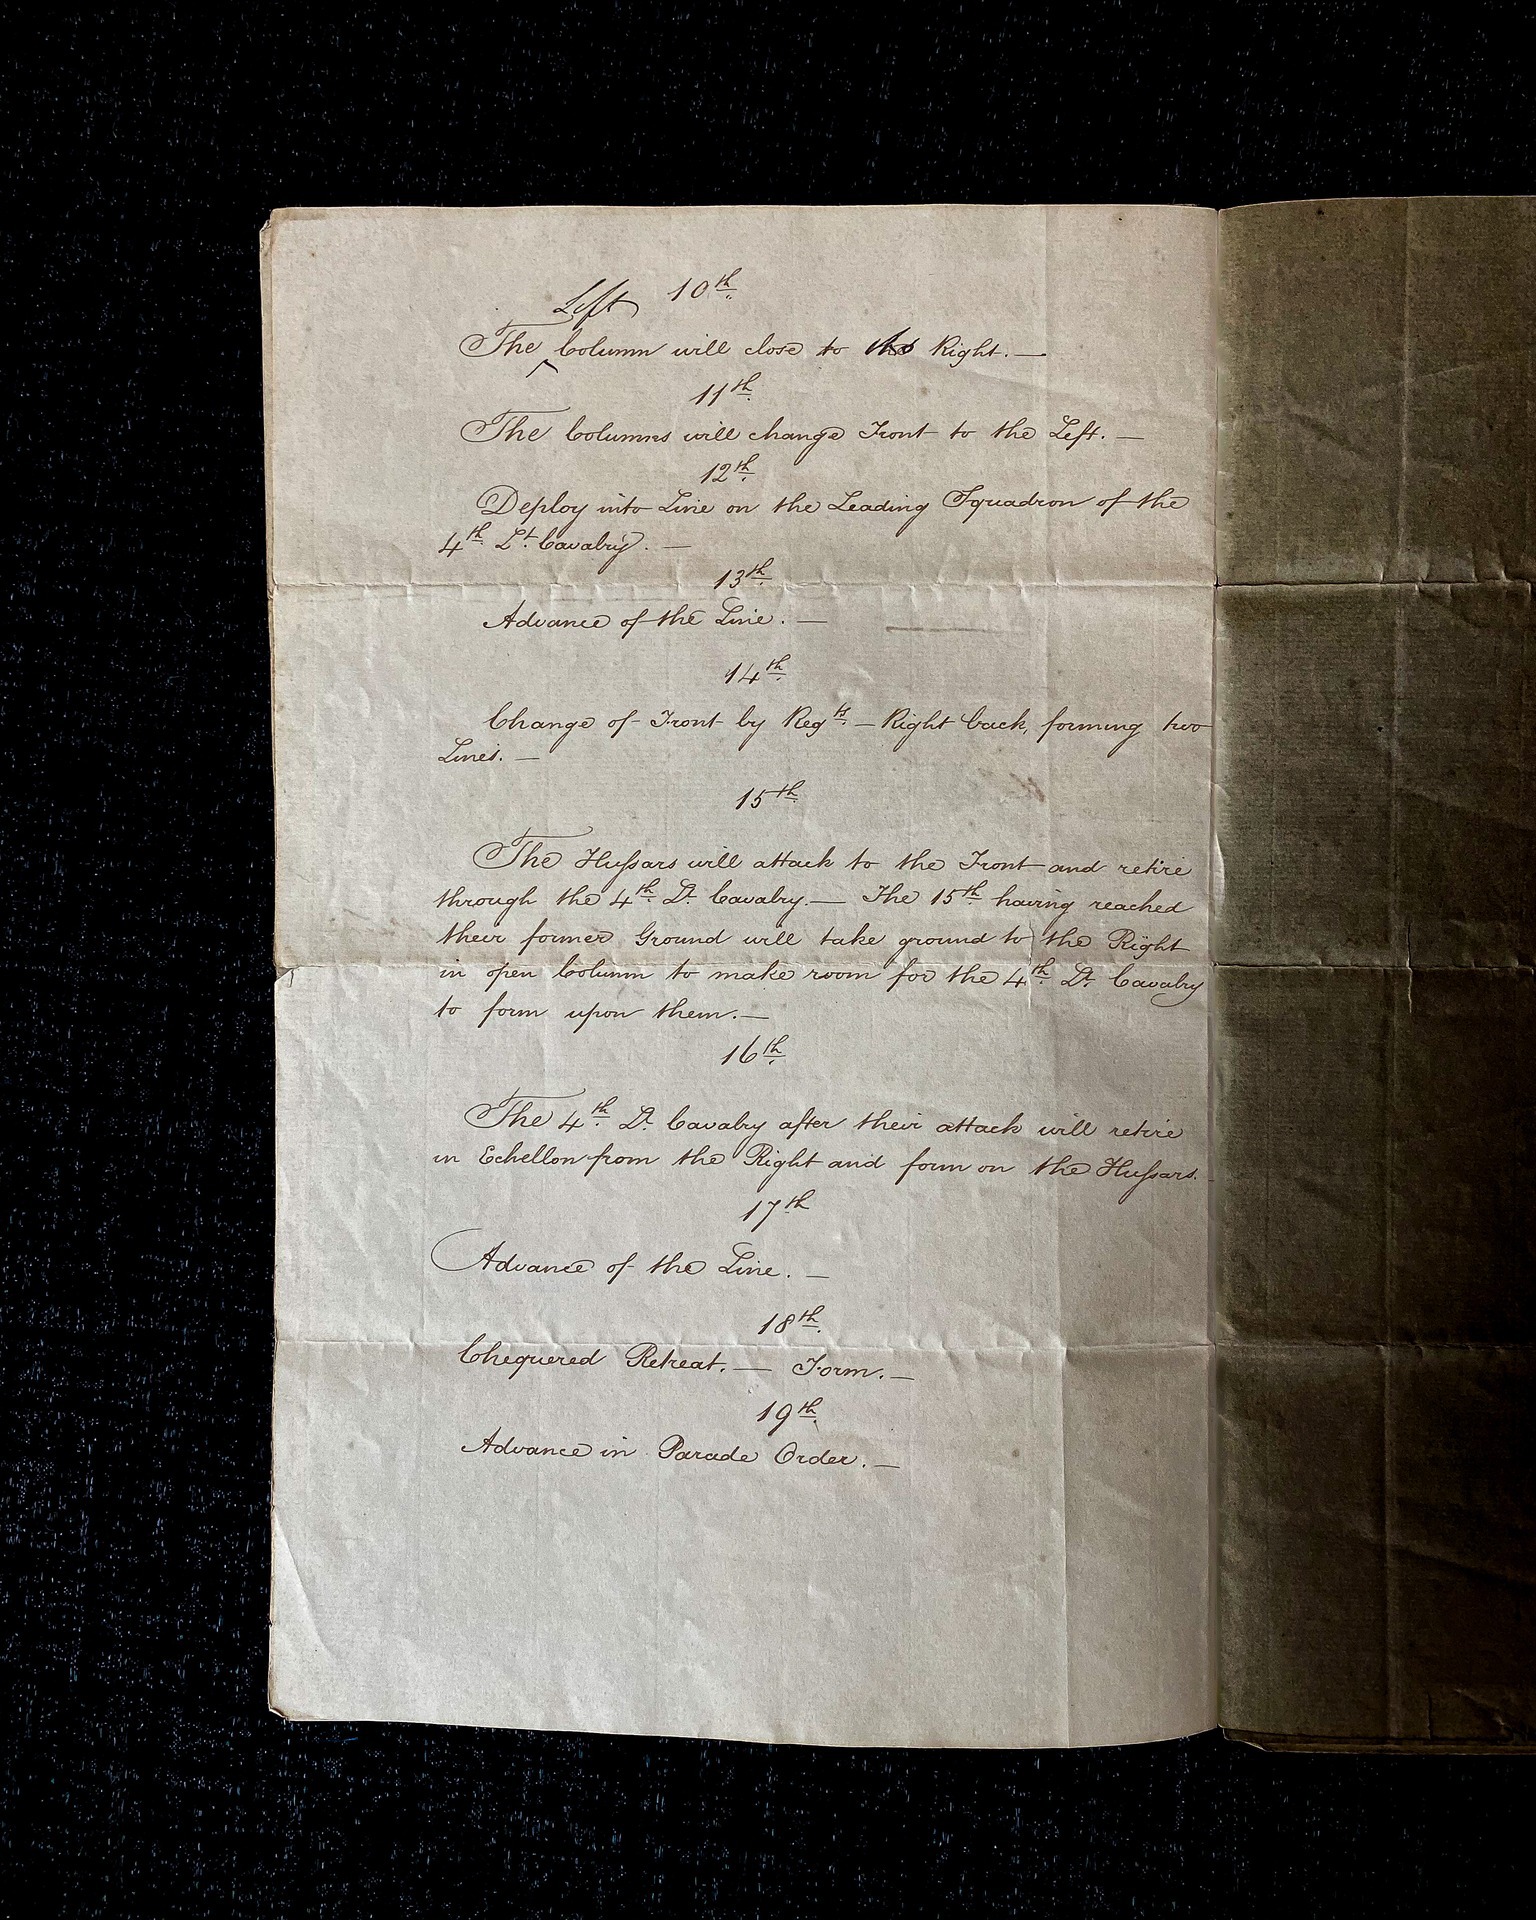 10th.
Left
The Column will close to the Right. —
11th.
The Columns will change Front to the Left. —
12th.
Deploy into Line on the Leading Squadron of the
4th. Lt. Cavalry. —
13th.
Advance of the Line. —
14th.
Change of Front by Regts. — Right back, forming two
Lines. —
15th.
The Hussars will attack to the Front and retire
through the 4th. Lt. Cavalry. — The 15th. having reached
their former Ground will take ground to the Right
in open Column to make room for the 4th. Lt. Cavalry
to form upon them. —
16th.
The 4th. Lt. Cavalry after their attack will retire
in Echellon from the Right and form on the Hussars.
17th.
Advance of the Line. —
18th.
Chequered Retreat. — Form. —
19th.
Advance in Parade Order. —